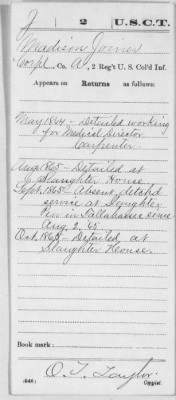 J 2 U.S.C.T.
Madison Joiner
Corpl, Co. A, 2 Reg't U. S. Col'd Inf.
Appears on
Returns as follows:
May 1864 - Detailed working
for Medical Director
Carpenter
Aug. 1865 - Detailed at
Slaughter House
Sept. 1865 - Absent, detchd
service at Slaughter
Pen in Tallahassee since
Aug. 2, 65
Oct. 1865 - Detailed at
Slaughter House.
Book mark:
O. T. Taylor
(646) Copyist.